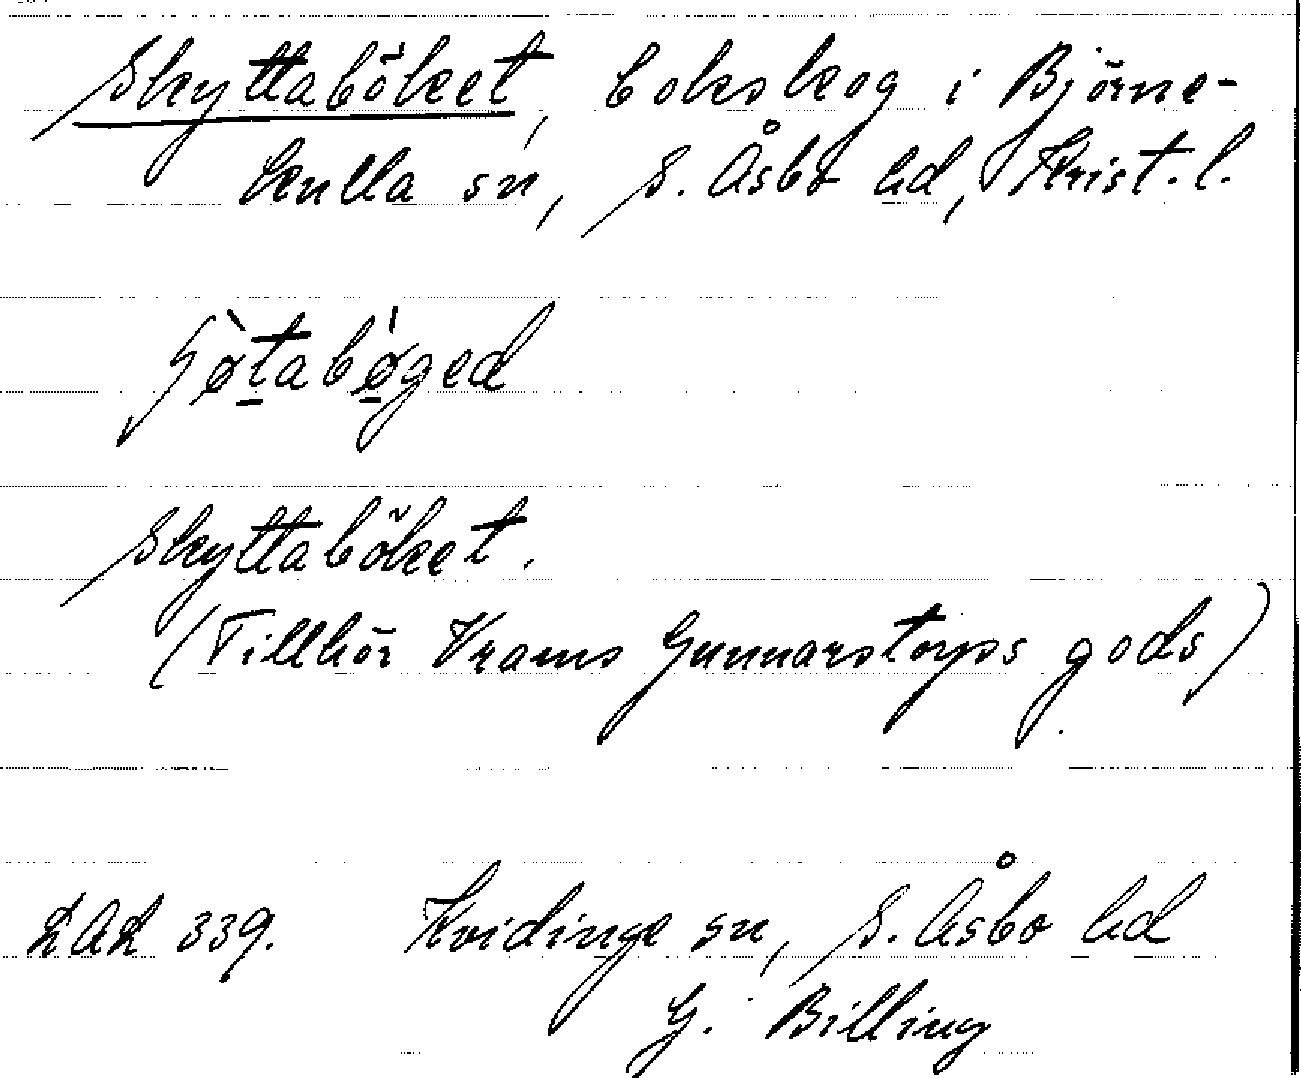 Skyttaböket, bokskog i Björne-
kulla sn, S. Åsbo hd, Krist. l.
ʃø̀tabǿged
Skyttaböket.
(Tillhör Vrams Gunnarstorps gods)
LAL 339. Kvidinge sn, S. Åsbo hd
G. Billing